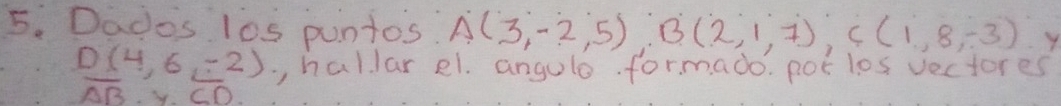 5. Dados los puntos A(3,-2,5), B(2,1,7), C(1,8,-3) y
D(4,6,-2)., hallar el. angulo formado. por los vectores
AB y CD